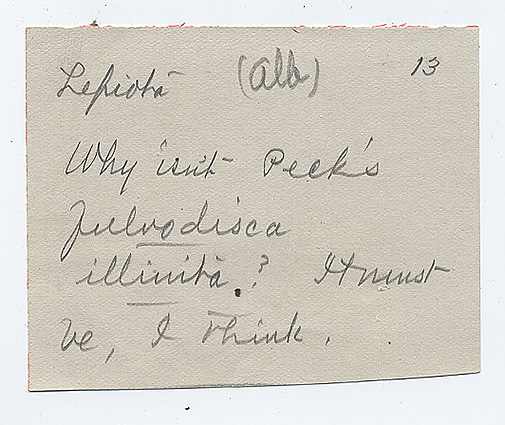 Lepiota (Alb) 13
Why isn't Peck's
fulvodisca
illinita? It must
be, I think.